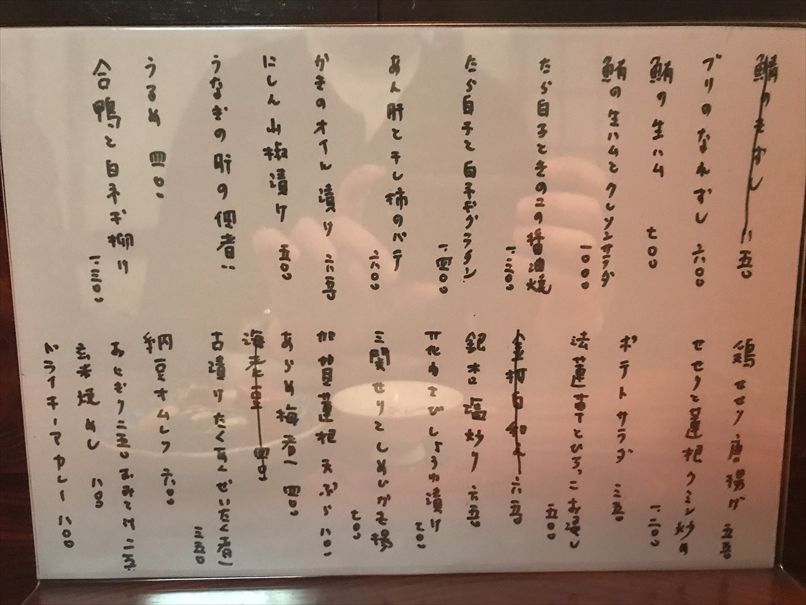 鯖のきずし 八五〇
ブリのなれずし 六〇〇
鮪の生ハム 七〇〇
鮪の生ハムとクレソンサラダ 一〇〇〇
たら白子ときのこの醤油焼 一二〇〇
たら白子と白ネギグラタン 一四〇〇
あん肝と干し柿のパテ 六〇〇
かきのオイル漬け 六五〇
にしん山椒漬け 五〇〇
うなぎの肝の佃煮
うるめ 四〇〇
合鴨と白ネギ柳川 一二〇〇
鶏せせり唐揚げ 五五〇
せせりと蓮根クミン炒め 一二〇〇
ポテトサラダ 三五〇
法蓮草とひろっこおひたし 五五〇
六五〇
銀杏塩炒り 六五〇
花わさびしょうゆ漬け 七〇〇
三関せりとしめじかき揚 七〇〇
加賀蓮根天ぷら 八〇〇
あらめ梅煮 四〇〇
海老豆 四〇〇
古漬けたくあんぜいたく煮 三五〇
納豆オムレツ 六〇〇
おにぎり 二五〇 おみそ汁 二五〇
玄米焼めし 八〇〇
ドライキーマカレー 八〇〇